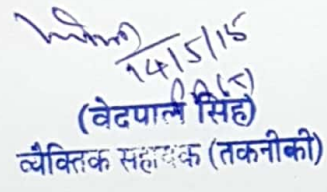 14/5/15
(वेदपाल सिंह)
वैयक्तिक सहायक (तकनीकी)